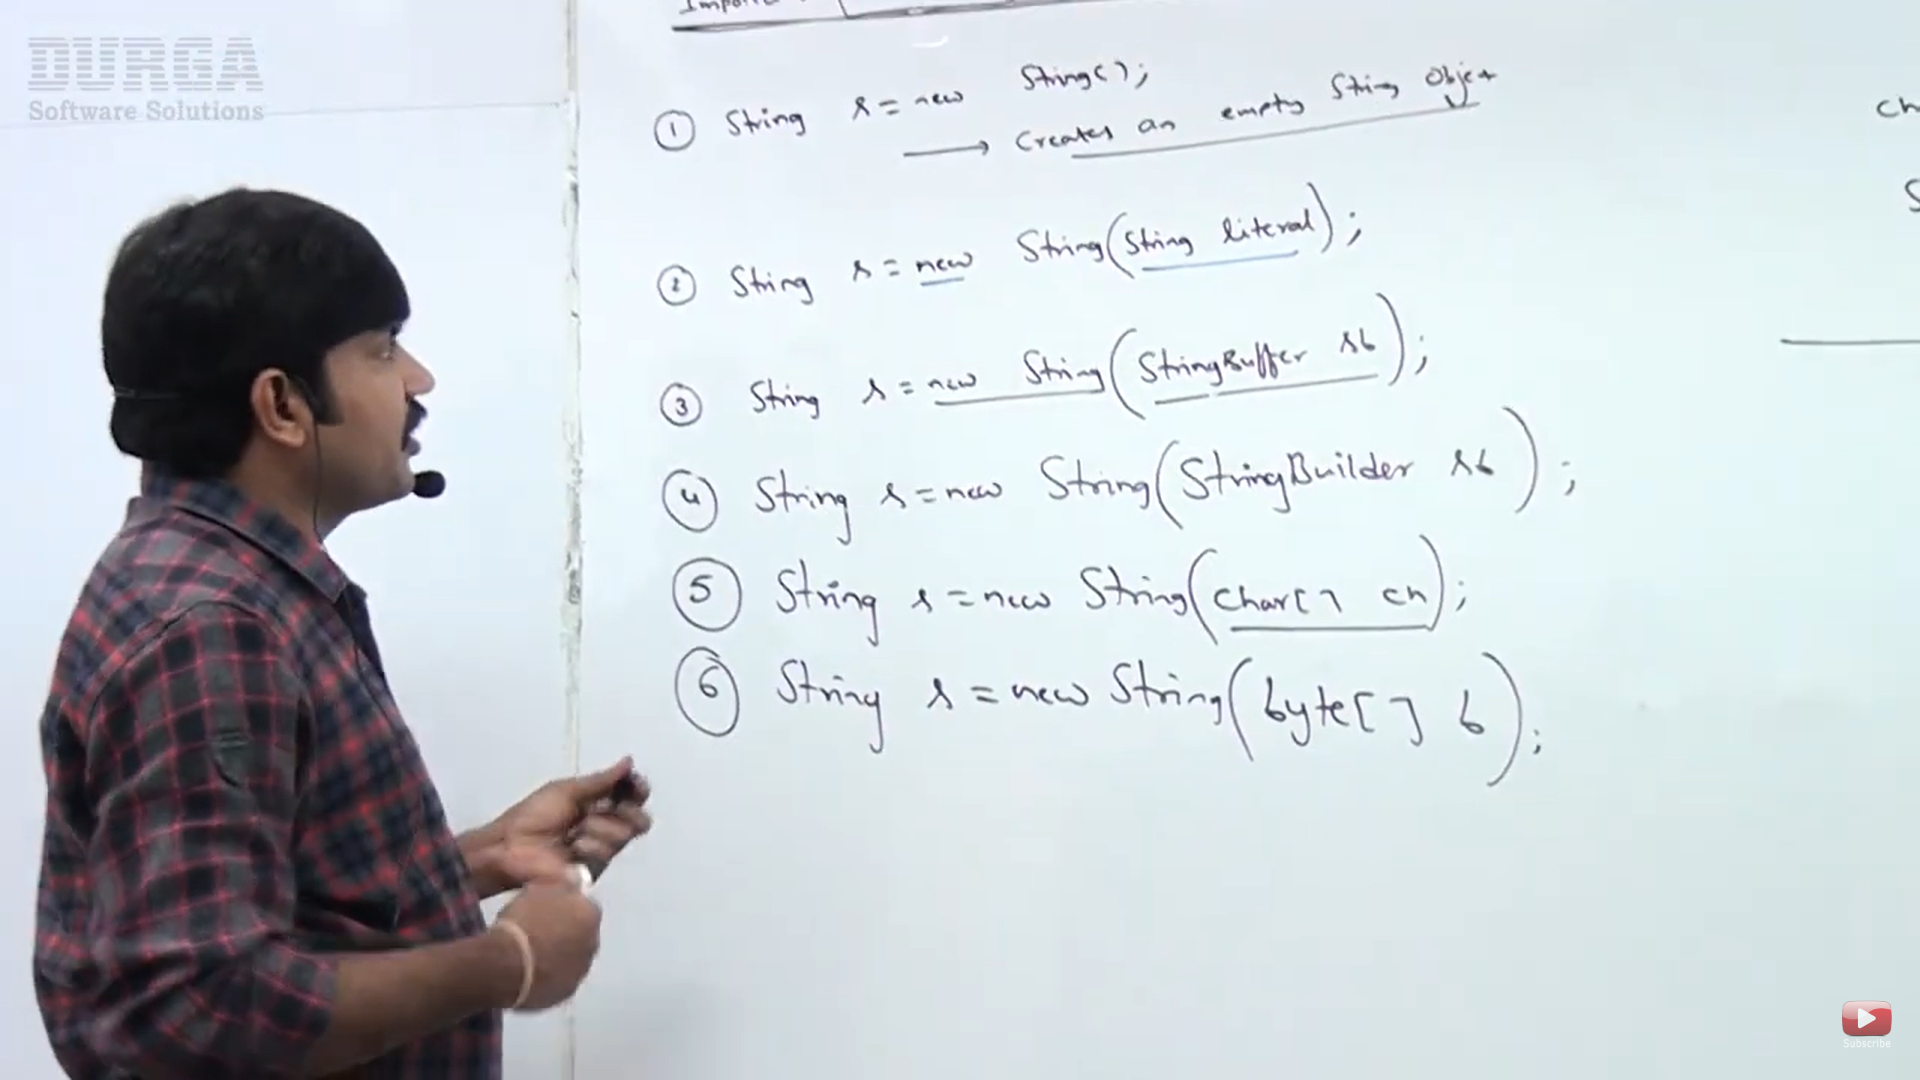 DURGA
Software Solutions
① String s = new String();
→ Creates an empty String Object
② String s = new String(String literal);
③ String s = new String(StringBuffer sb);
④ String s = new String(StringBuilder sb);
⑤ String s = new String(char[] ch);
⑥ String s = new String(byte[] b);
Subscribe